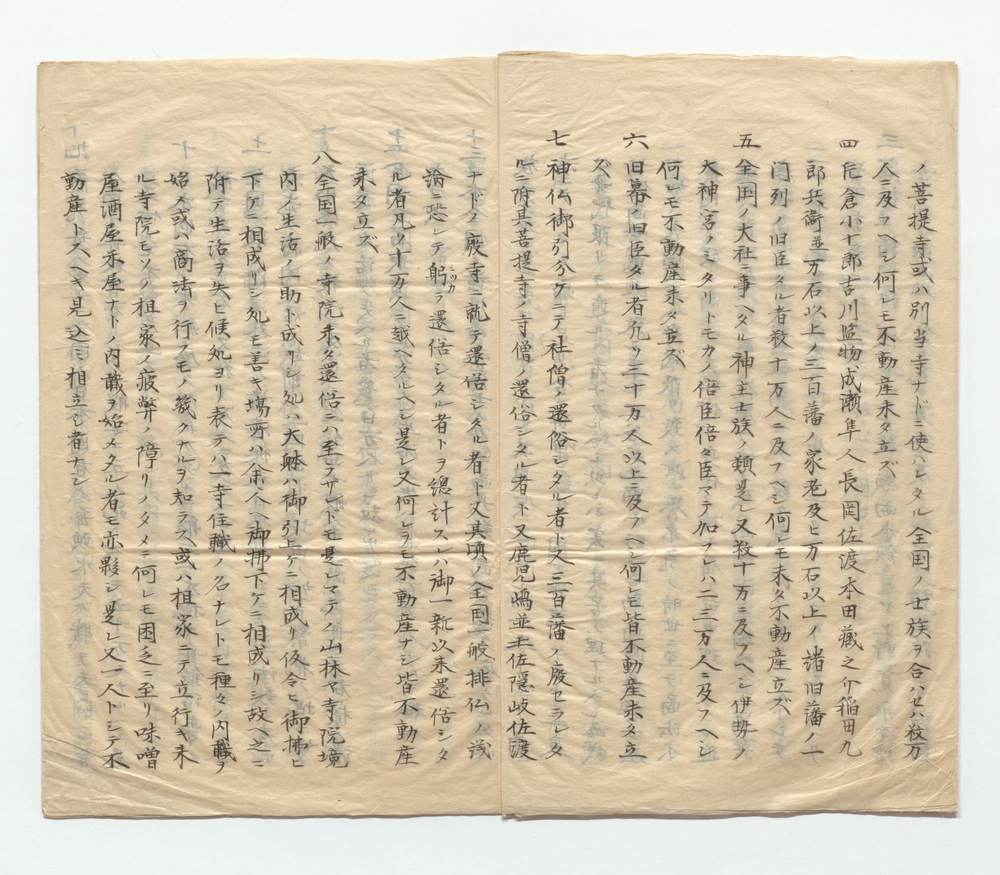 ノ菩提寺或ハ別当寺ナドニ使ハレタル全国ノ士族ヲ合ハセハ殺万
人ニ及フヘシ何レモ不動産未タ立ズ
四 片倉小十郎吉川監物成瀬隼人長岡佐渡本田蔵之介稲田九
郎兵衛並万石以上ノ三百藩ノ家老及ヒ万石以上ノ諸旧藩ノ一
门列ノ旧臣タル者殺十万人ニ及フヘシ何レモ未タ不動産立ズ
五 全国ノ大社ニ事ヘタル神主士族ノ類是レ又殺十万ニ及フヘシ伊勢ノ
大神宮ノミタリトモカノ倍臣倍々臣マテ加フレハ二三万人ニ及フヘシ
何レモ不動産未タ立ズ
六 旧幕ノ旧臣タル者凡ソ三十万人以上ニ及フヘシ何レモ皆不動産未タ立
ズ
七 神仏御引分ケニテ社僧ノ還俗シタル者ト又三百藩ノ廃セラレタ
ルニ附其菩提寺ノ寺僧ノ還俗シタル者ト又鹿児嶋並土佐隠岐佐渡
ナドノ廃寺ニ就テ還俗シタル者ト又其頃ノ全国一般排仏ノ議
論ニ恐レテ躬ラ還俗シタル者トヲ總計スレハ御一新以来還俗シタ
ミツカ
ル者凡ソ十万人ニ越ヘタルヘシ是レ又何レラモ不動産ナシ皆不動産
未タ立ズ
八 全国一般ノ寺院未タ還俗ニハ至ラザレドモ是レマテノ山林ヤ寺院境
内ノ生活ノ一助ト成リシ処ハ大躰ハ御引上ケニ相成リ仮令ヒ御拂ヒ
下ケニ相成リシ処モ善キ場所ハ余人ヘ御拂下ケニ相成リシ故ヘ之ニ
附テ生活ヲ失ヒ候処ヨリ表テハ一寺住職ノ名ナレトモ種々ノ内職ヲ
始メ或ハ商法ヲ行フモノ幾クナルヲ知ラス或ハ祖家ニテ立行キ来
ル寺院モソノ祖家ノ疲弊ノ障リノタメニ何レモ困乏ニ至リ味噌
屋酒屋米屋ナトノ内職ヲ始メタル者モ亦夥シ是レ又一人トシテ不
動産トスヘキ見込ミ相立シ者ナシ